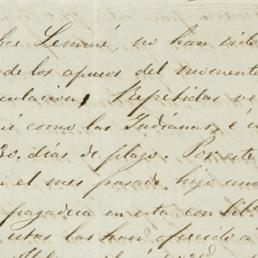 Lemmé, no han sido
de los apuros del momento
culacion. Repetidas ve
como las Indianas, é i
30. dias de plazo. Por este
n el mes pasado hizo una
pagadera en esta con
otros las han ofrecido á